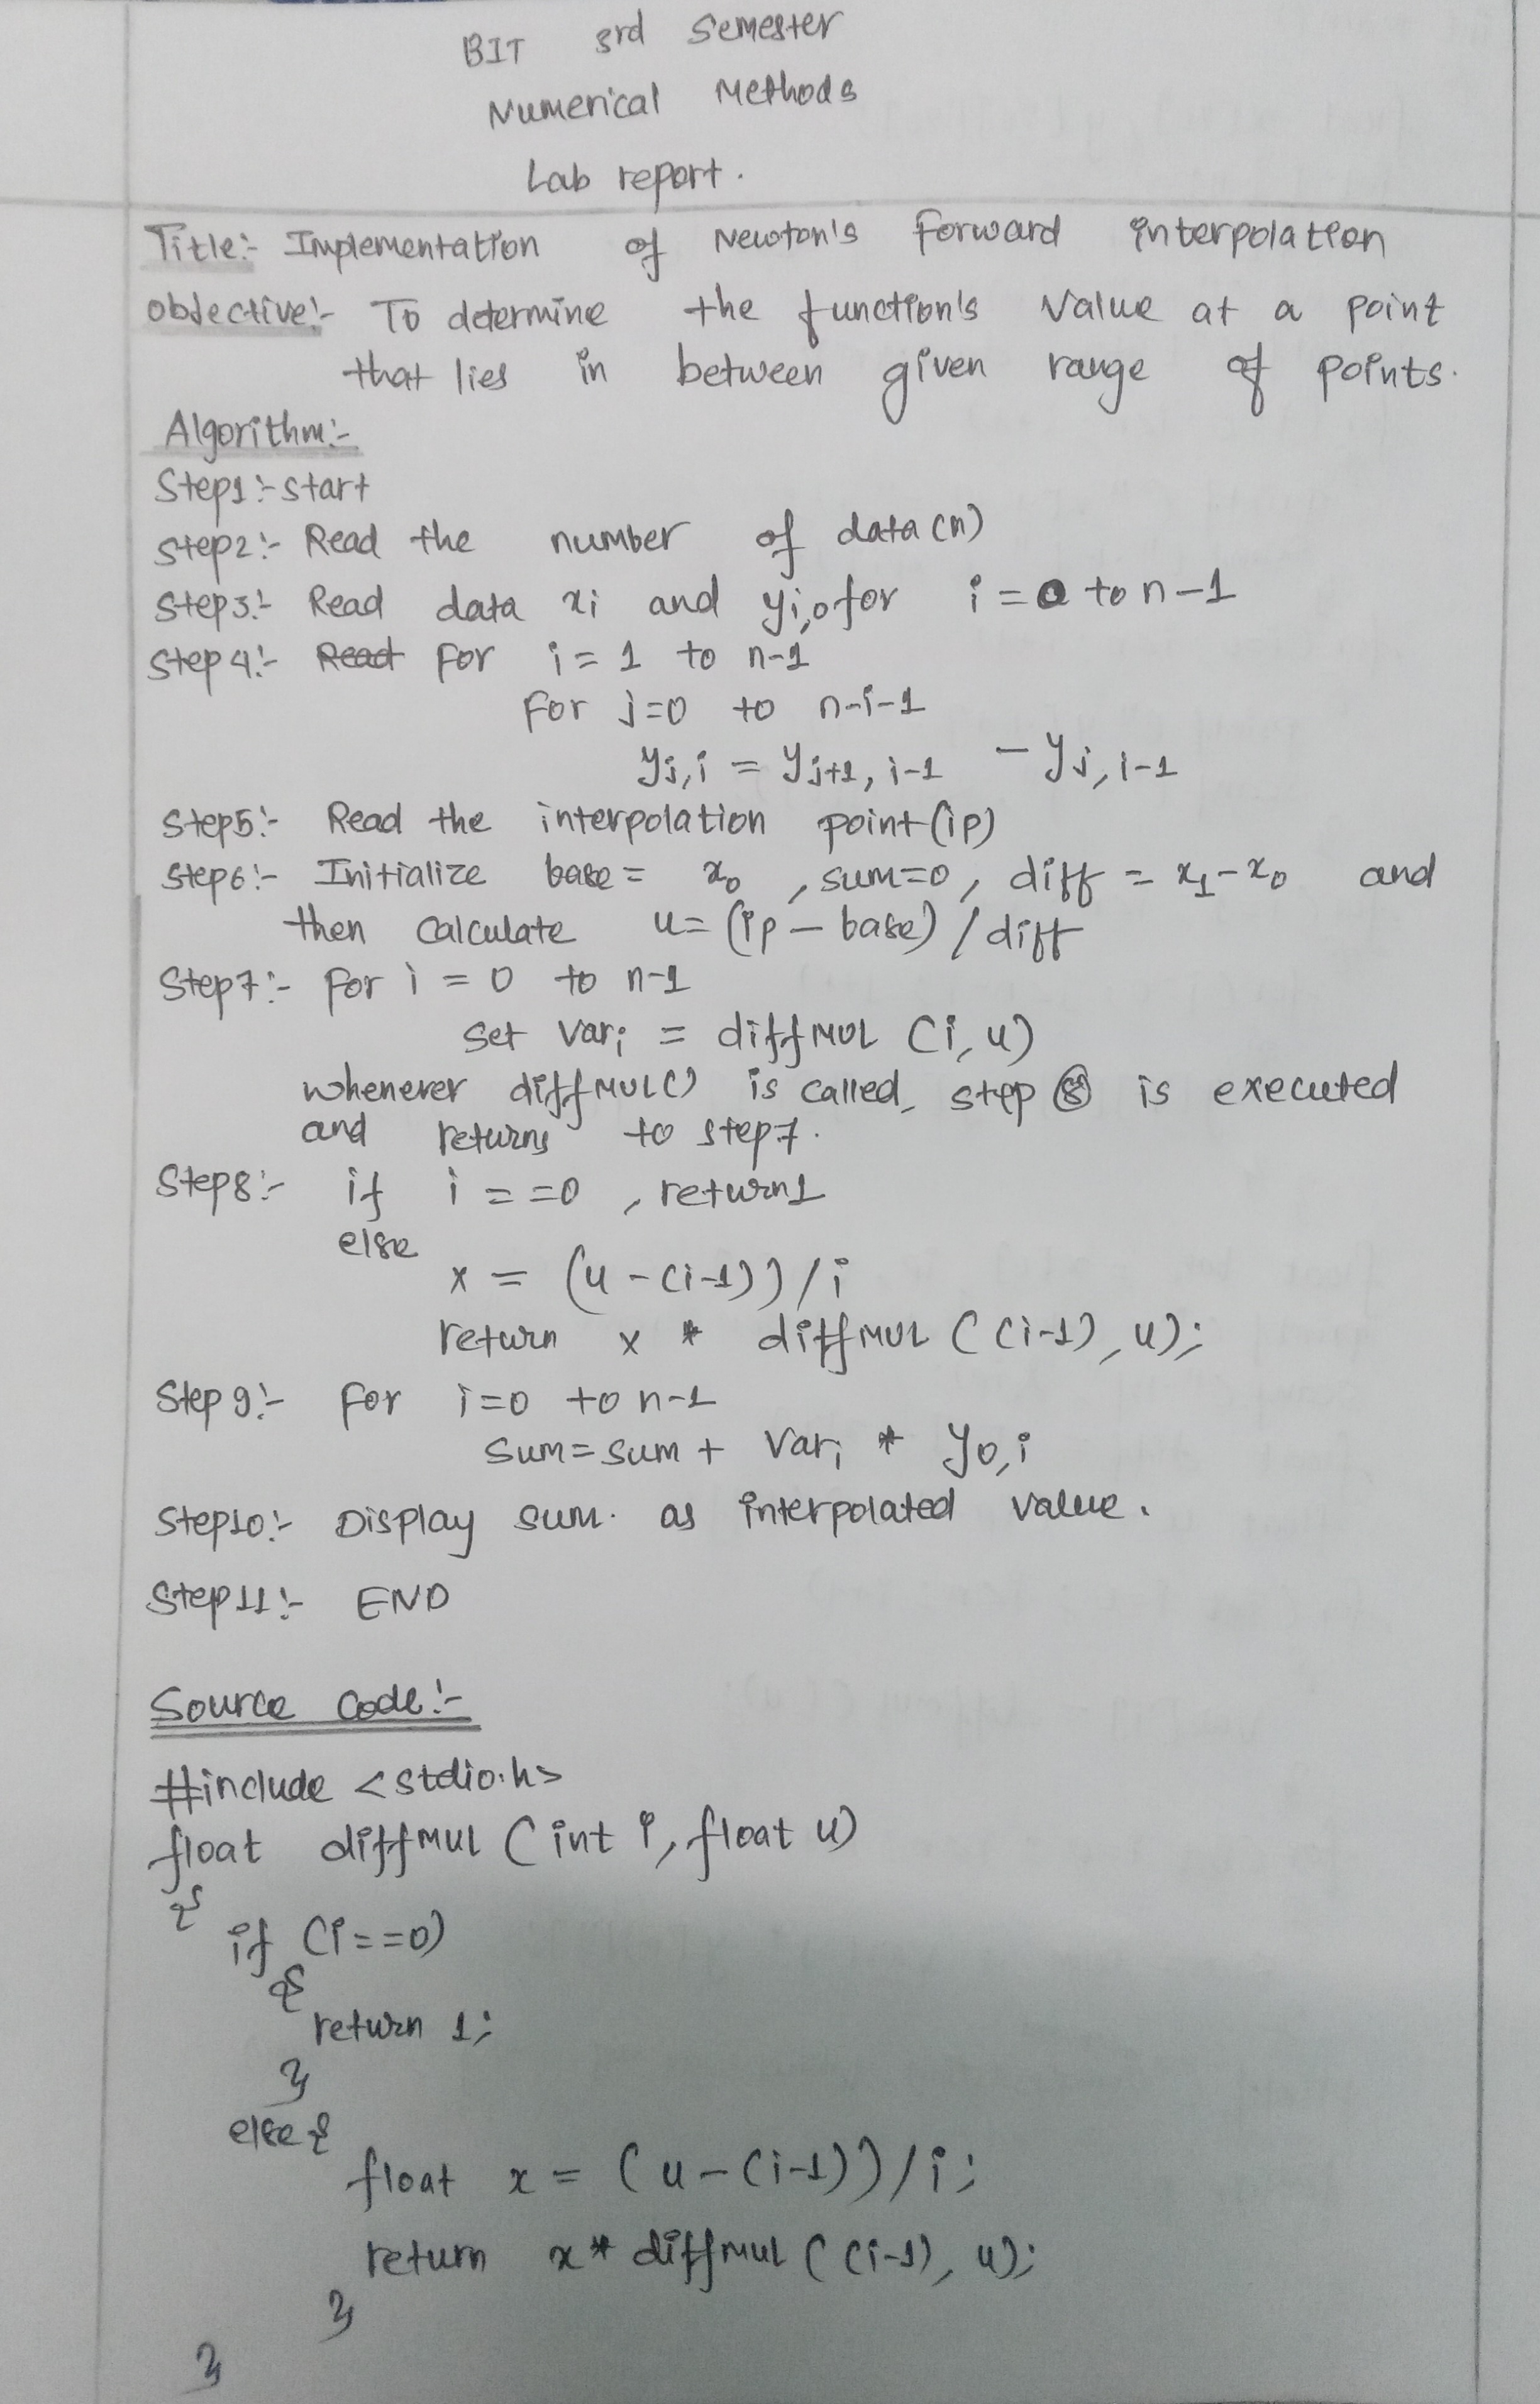 BIT 3rd Semester
Numerical Methods
Lab report.
Title:- Implementation of Newton's forward interpolation
objective:- To determine the function's value at a point
that lies in between given range of points.
Algorithm:-
Step1:- start
Step2:- Read the number of data (n)
Step3:- Read data xi and yi,0 for i = 0 to n-1
Step 4:- ~~Read~~ For i = 1 to n-1
For j=0 to n-i-1
yj,i = yj+1, i-1 - yj, i-1
Step5:- Read the interpolation point (ip)
Step6:- Initialize base = x0 , sum=0, diff = x1-x0 and
then calculate u= (ip - base) / diff
Step7:- For i = 0 to n-1
Set vari = diffMUL (i, u)
whenever diffMUL() is called, step ⑧ is executed
and returns to step7.
Step8:- if i ==0 , return1
else
x = (u-(i-1))/i
return x * diffMUL ((i-1), u);
Step 9:- For i=0 to n-1
sum=sum + vari * y0,i
Step10:- Display sum. as interpolated value.
Step11:- END
Source code:-
#include <stdio.h>
float diffMUL (int i, float u)
{
if (i==0)
{
return 1;
}
else {
float x = (u-(i-1))/i;
return x* diffMUL ((i-1), u);
}
}